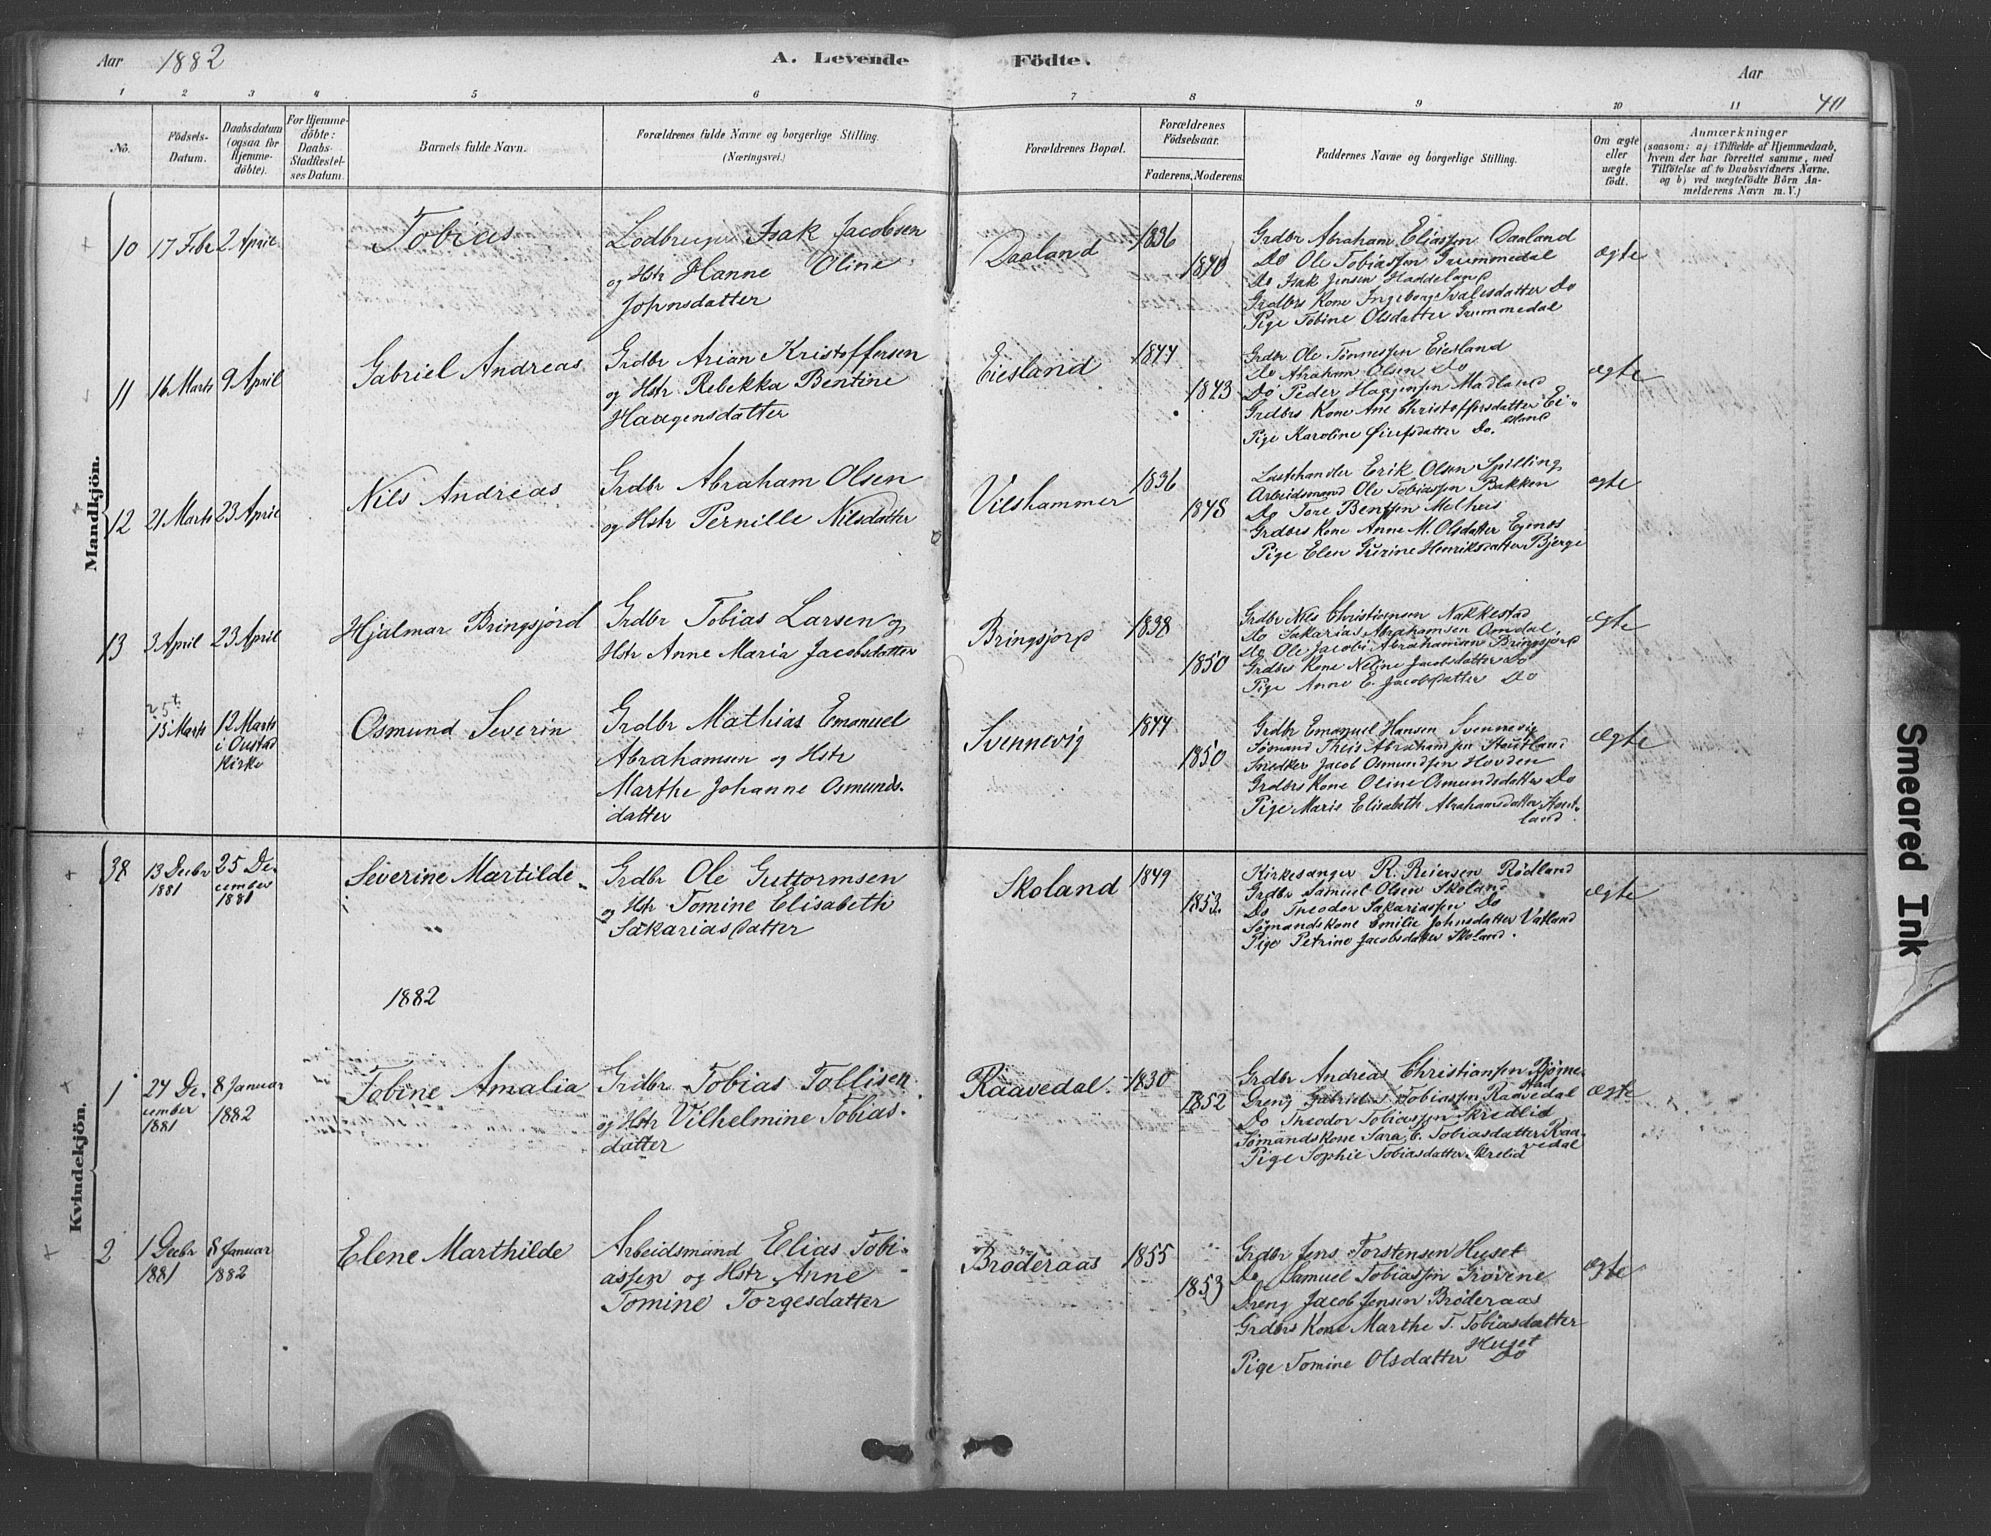 Aar 1882 A. Levende Födte. Aar
40
1 2 3 4 5 6 7 8 9 10 11
No.
Födsels-
Datum.
Daabsdatum
(ogsaa for
Hjemme-
döbte).
For Hjemme-
döbte:
Daabs-
Stadfæstel-
ses Datum.
Barnets fulde Navn.
Forældrenes fulde Navne og borgerlige Stilling.
(Næringsvei.)
Forældrenes Bopæl.
Forældrenes
Födselsaar.
Faderens. Moderens.
Faddernes Navne og borgerlige Stilling.
Om ægte
eller
uægte
födt.
Anmærkninger
(saasom: a) i Tilfælde af Hjemmedaab,
hvem der har forrettet samme, med
Tilföielse af to Daabsvidners Navne.
og b) ved uægtefödte Börn An-
melderens Navn m. V.)
Mandkjön.
10 17 Febr 2 April
Tobias
Isak Jacobsen
og Hstr Hanne Oline
Johnsdatter
Daaland
1836
1840
Grdbr Abraham Eliassen Daaland
Do Ole Tobiassen Grummedal
Do Isak Jensen Haddeland
Grdbrs Kone Ingeborg Do
Pige Tobine Olsdatter Grummedal
ægte
11 16 Marts 9 April
Gabriel Andreas
Grdbr Arian Kristoffersen
og Hstr Rebekka Bentine
Haagensdatter
Eiesland
1844
1843
Grdbr Ole Tønnessen Eiesland
Do Abraham Olsen Do
Do Peder Madland
Grdbrs Kone Ane Christoffersdatter Ei-
esland
Pige Karoline Do.
ægte
12 21 Marts 23 April
Nils Andreas
Grdbr Abraham Olsen
og Hstr Pernille Nilsdatter
Vilshammer
1836
1848
Erik Olsen Spilling
Arbeidsmand Ole Tobiassen Bakken
Do Tore Bentsen Melheis
Grdbrs Kone Anne M. Olsdatter
Pige Elen Gurine Henriksdatter Bjerge
ægte
13 3 April 23 April
Hjalmar Bringsjord
Grdbr Tobias Larsen og
Hstr Anne Maria Jacobsdatter
Bringsjord
1838
1850
Grdbr Nils Christiensen Nakkestad
Do Sakarias Abrahamsen Omdal
Do Ole Jacob Abrahamsen Bringsjord
Grdbrs Kone Neline Jacobsdatter Do
Pige Anne E. Jacobsdatter Do
ægte
15 Marts
12 Marts
i Oustad
Kirke
Osmund Severin
Grdbr Mathias Emanuel
Abrahamsen og Hstr
Marthe Johanne Osmunds-
datter
Svennevig
1844
1850
Grdbr Emanuel Hansen Svennevig
Sømand Theis Abrahamsen
Snedker Jacob Osmundsen Hovden
Grdbrs Kone Oline Osmundsdatter Do
Pige Marie Elisabeth Abrahamsdatter
land.
ægte
Kvindekjön.
38
13 Decbr
1881
25 De-
cember
1881
Severine Martilde
Grdbr Ole Guttormsen
og Hstr Tomine Elisabeth
Sakariasdatter
Skoland
1849
1853.
Kirkesanger R. Reiersen Rødland
Grdbr Samuel Olsen Skoland
Do Theodor Sakariassen Do
Sømandskone Emilie Johnsdatter Vatland
Pige Petrine Jacobsdatter Skoland.
ægte
1882
1
27 De-
cember
1881
8 Januar
1882
Tobine Amalia
Grdbr Tobias Tollisen
og Hstr Vilhelmine Tobias-
datter
Raavedal.
1830
1852
Grdbr Andreas Christiansen Bjøgne-
stad
Dreng Gabriel Tobiassen Raavedal
Do Theodor Tobiassen Skredlid
Sømandskone Sara E. Tobiasdatter Raa-
vedal
Pige Sophie Tobiasdatter Skrelid
ægte
2
1 Decbr
1881
8 Januar
1882
Elene Marthilde
Arbeidsmand Elias Tobi-
assen og Hstr Anne
Tomine Torgesdatter
Brøderaas
1855
1853
Grdbr Jens Torstensen Huset
Do Samuel Tobiassen Grovene
Dreng Jacob Jensen Brøderaas
Grdbrs Kone Marthe T. Tobiasdatter
Huset
Pige Tomine Olsdatter Do
ægte
Smeared Ink